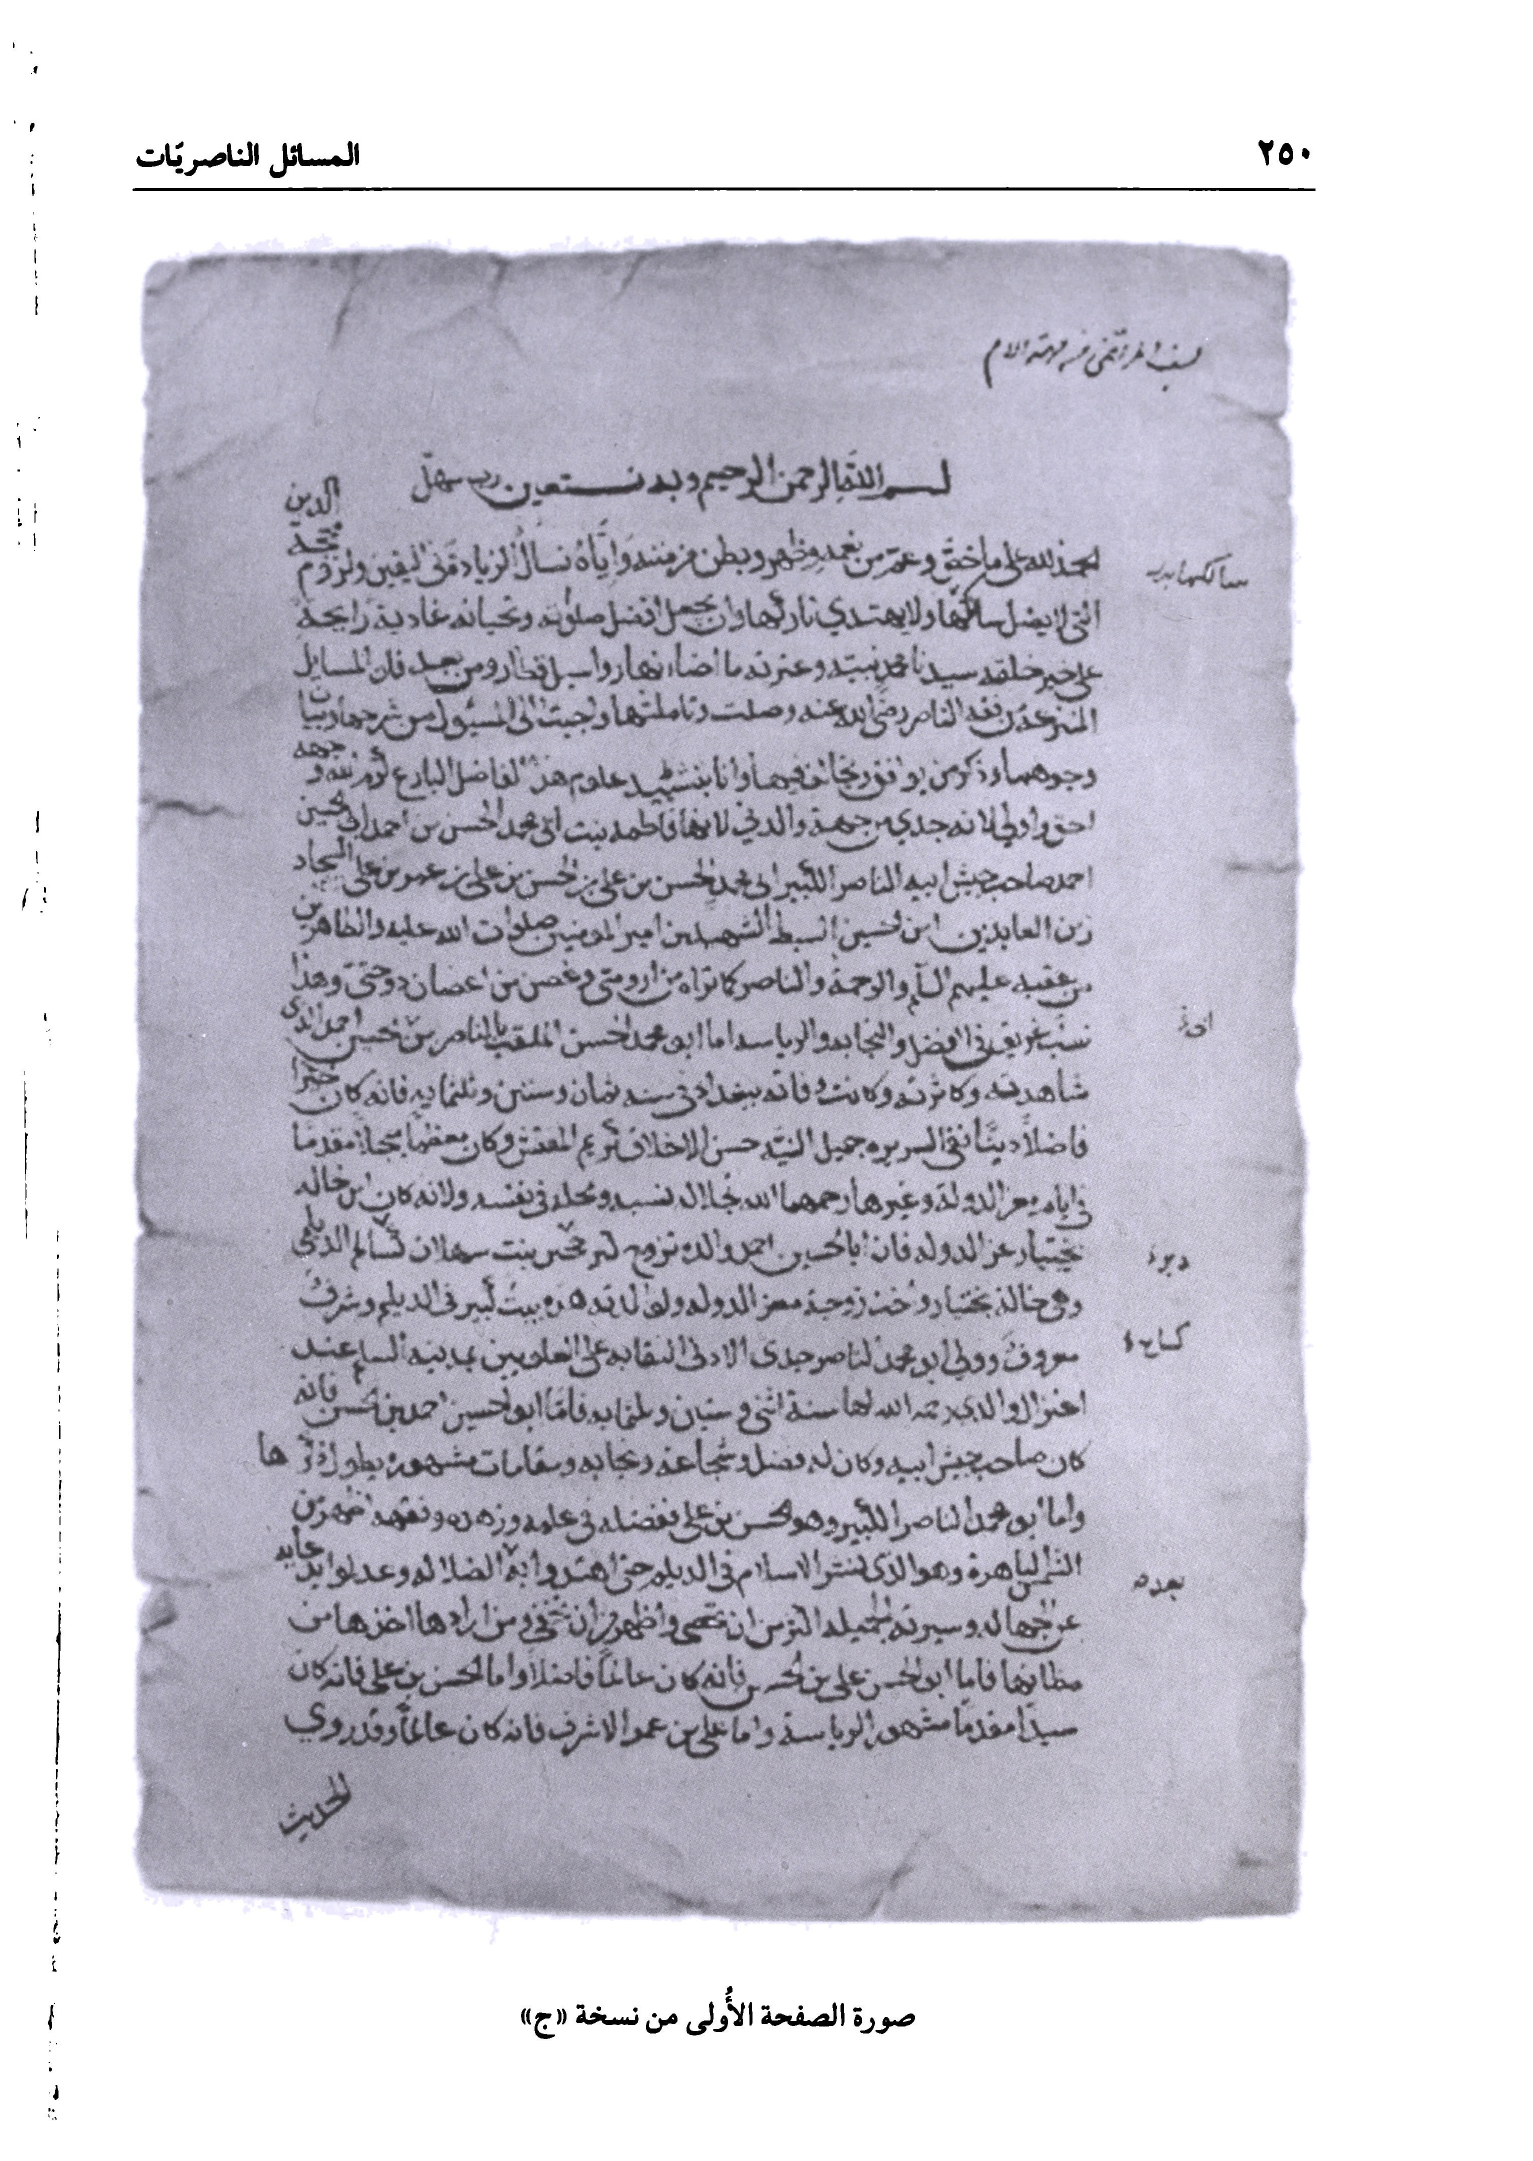 ٢٥٠
المسائل الناصريّات
بسم الله الرحمن الرحيم وبه نستعين رب سهل
الحمد لله على ما خص وعم من نعمه وظهر وبطن من مننه واياه نسال الزيادة في اليقين ولزوم محجة الدين
التي لا يضل سالكها ولا يهتدي تاركها وان يجعل افضل صلوته وتحياته غادية رايحة
على خير خلقه سيدنا محمد نبيه وعترته ما اضاء نهار واسبل قطار ومن بعد فان المسايل
المنتزعة من فقه الناصر رضي الله عنه وصلت وتاملتها واجبت الى المسئول من شرحها وبيان
وجوهها وذكر من يوافق ويخالف فيها وانا بتشييد علوم هذا الفاضل البارع كرم الله وجهه
احق واولى لانه جدي من جهة والدتي لانها فاطمه بنت ابي محمد الحسن بن احمد ابي الحسين
احمد صاحب جيش ابيه الناصر الكبير ابي محمد الحسن بن علي بن الحسن بن علي بن عمر بن علي السجاد
زين العابدين ابن الحسين السبط الشهيد بن امير المومنين صلوات الله عليه والطاهرين
من عقبه عليهم السلم والرحمة والناصر كما تراه من ارومتي وغصن من اغصان دوحتي وهذا
نسب عريق في الفضل والنجابه والرياسه اما ابو محمد الحسن الملقب بالناصر بن ابي الحسين احمد الذي
شاهدته وكاثرته وكانت وفاته ببغداد في سنه ثمان وستين وثلثمايه فانه كان خيرا
فاضلا دينا نقي السريره جميل النيه حسن الاخلاق كريم النفس وكان معظما مبجلا مقدما
في ايام معز الدولة وغيرها رحمهما الله لجلاله نسبه ومحله في نفسه ولانه كان ابن خاله
بختيار عز الدوله فان ابا الحسين احمد والده تزوج بنت سهلان السالم الديلمي
وهي خالة بختيار واخت زوجة معز الدوله ولوالدته هذه بيت كبير في الديلم وشرف
معروف وولي ابو محمد الناصر جدي الادنى النقابه على العلويين بمدينه السلم عند
اعتزال والدي رحمه الله لها سنة اثني وستين وثلثمايه فاما ابو الحسين احمد بن الحسن فانه
كان صاحب جيش ابيه وكان له فضل وشجاعة ونجابه ومقامات مشهوره يطول ذكرها
واما ابو محمد الناصر الكبير وهو الحسن بن علي ففضله في علمه وزهده وفقهه اظهر من
الشمس الباهرة وهو الذي نشر الاسلام في الديلم حتى اهتدوا به بعد الضلاله وعدلوا بدعايه
عن الجهاله وسيرته الجميله اكثر من ان تحصى واظهر من ان تخفى ومن ارادها اخذها من
مظانها فاما ابو الحسن علي بن الحسن فانه كان عالما فاضلا واما الحسن بن علي فانه كان
سيدا مقدما مشهور الرياسة واما علي بن عمر الاشرف فانه كان عالما وقد روي
الحديث
صورة الصفحة الأُولى من نسخة «ج»